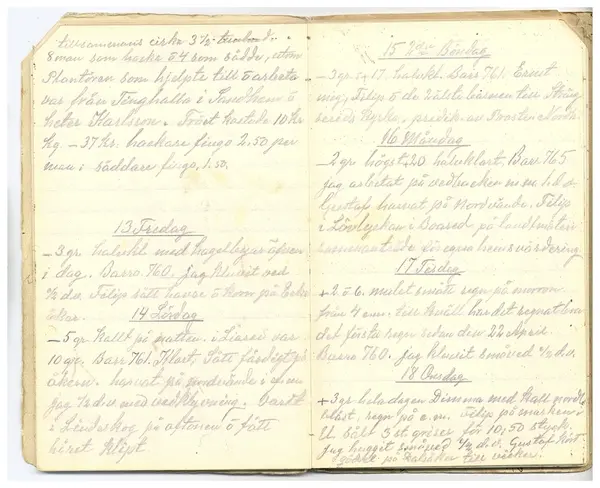 tillsammans cirka 3½ tunland.
8 man som hacka ö 4 som sådde, utom
Plantören som hjelpte till ö arbeta
var från Tånghalla i Sandhem ö
heter Karlsson. Fröet kostade 10 kr
kg – 37 kr. hackare fingo 2,50 per
man i såddare fingo 1.50.
13 Fredag
– 3 gr. halvkl. med hagelbyar äfven
i dag. Barro. 760. Jag kluvit ved
½ d.o. Felip sått havre ö korn på
åker.
14 Lördag
– 5 gr kallt på natten. i Liared var
10 gr. Barr 761. Klart, Sått färdigt på
åkern. harvat på nordvända i
jag ½ d.o med vedklyvning.
i Lindeskog på aftonen ö fått
håret klipt.
15 2dra Böndag
– 3 gr. 17. halvkl. Barr 761. Ernst
mig, Felip ö de äldste barnen till
Kyrka, predik. av Prosten
16 Måndag
– 2 gr högst +20 halvklart, Barr 765
jag arbetat på vedbacken m.m. h.d.o.
Gustaf harvat på Nordvända. Felip
i Lövlyckan i Boared på landtmäteri
sammanträde för egna hems värdering
17 Tisdag
+2 ö 6. mulet smått regn på morron
från 4 em. till kväll har det regnat bra
det första regn sedan den 22 April
Barro 760. Jag kluvit småved ½ d.o.
18 Onsdag
+3 gr hela dagen Dimma med kall nord
blåst, regn på e.m. Felip på marken i
U. sålt 3 st. griser för 10,50 styck.
Jag hugget småved ½ d.o. Gustaf kört
gödsel på till vicker.